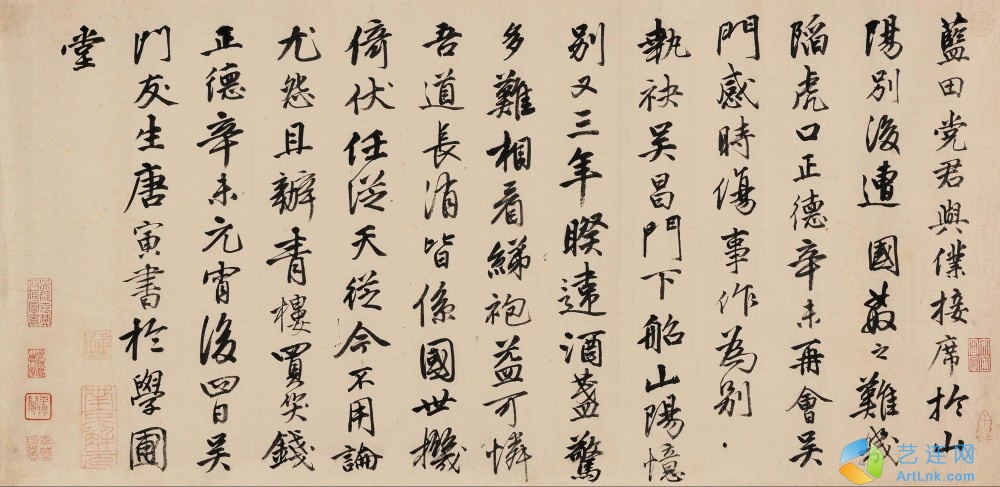 藍田党君與僕接席於山
陽別後遭國蔽之難幾
陷虎口正德辛未再會吴
門感時傷事作為別
執袂吴昌門下船山陽憶
別又三年睽違酒盞驚
多難相看綈袍益可憐
吾道長消皆係國世機
倚伏任從天從今不用論
尤怨且辦青樓買笑錢
正德辛未元宵後四日吴
門友生唐寅書於學圃
堂
艺连网
ArtLink.com